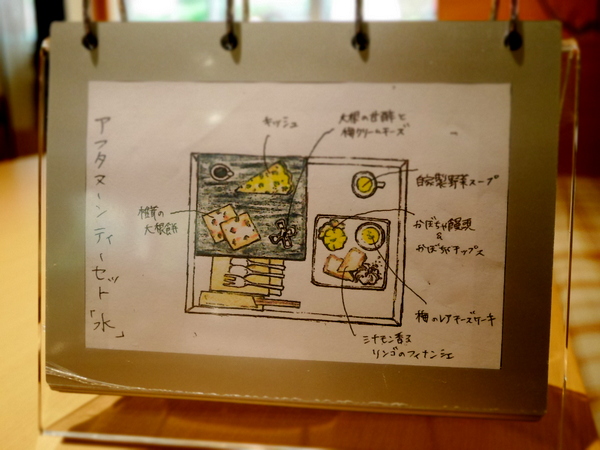 アフタヌーンティーセット「水」
キッシュ
大根の甘酢と
梅クリームチーズ
自家製野菜スープ
大根餅
かぼちゃ饅頭
&
かぼちゃチップス
梅のレアチーズケーキ
シナモン香る
リンゴのフィナンシェ